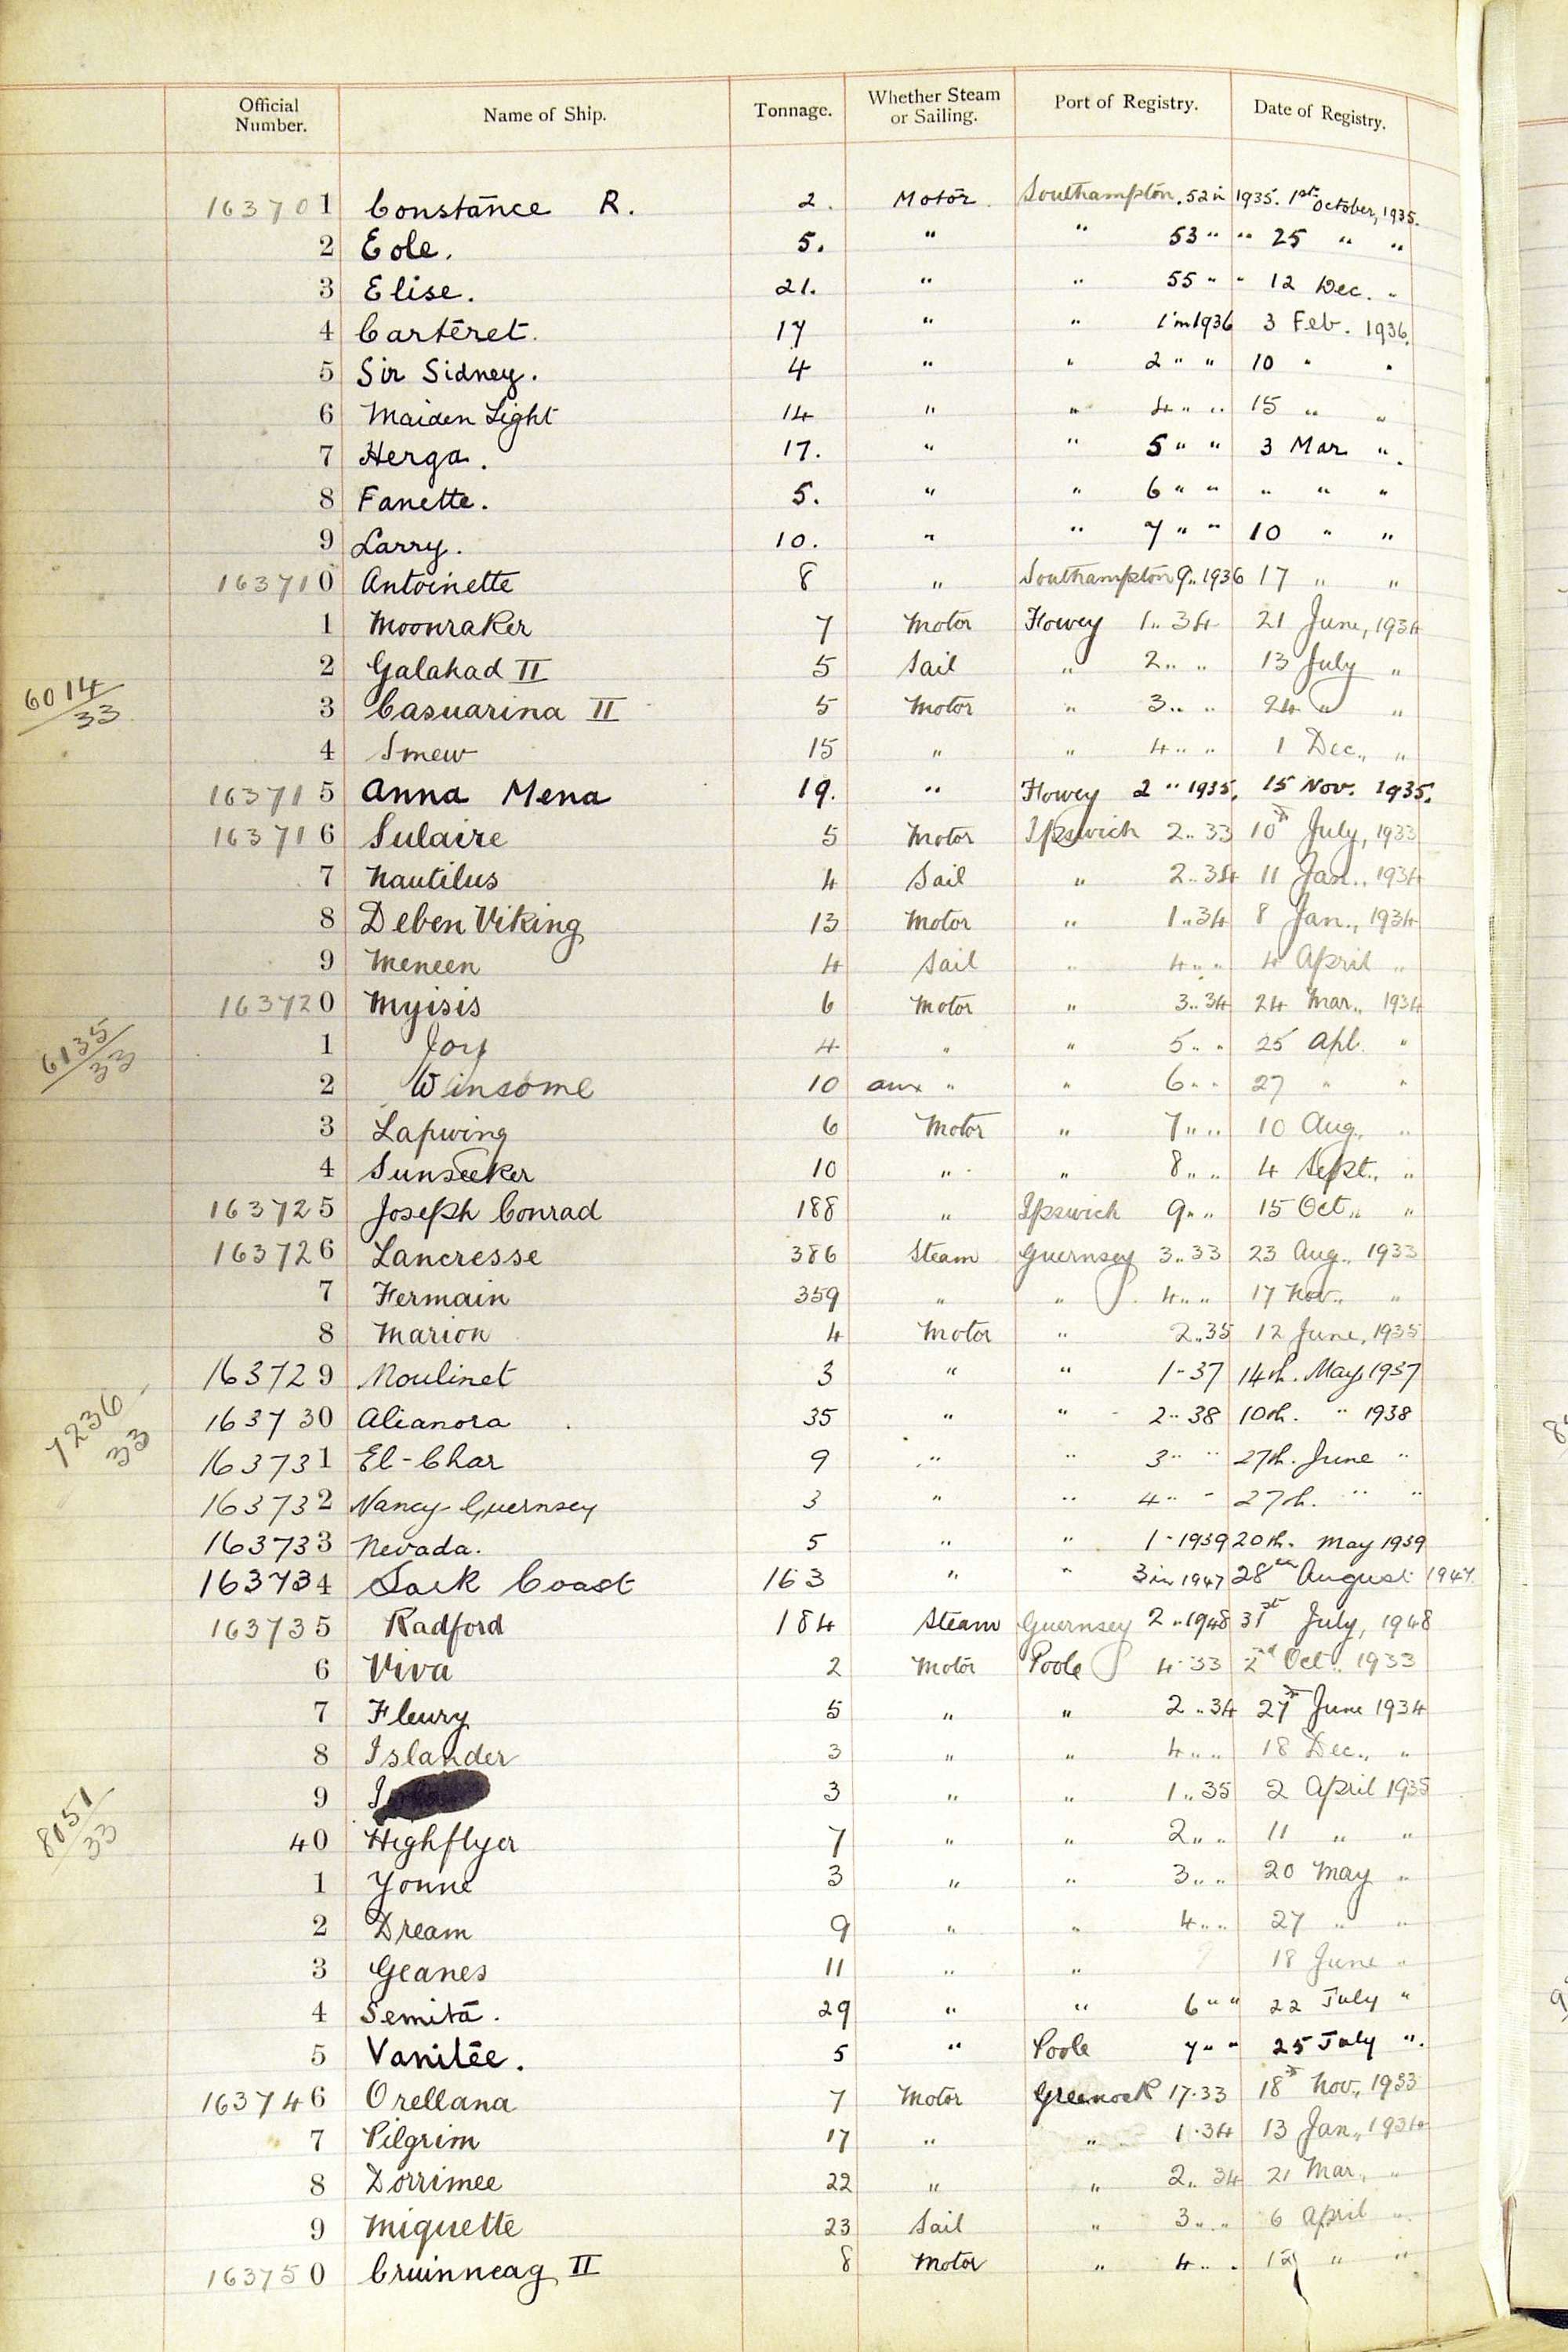 Official Number. Name of Ship. Tonnage. Whether Steam or Sailing. Port of Registry. Date of Registry.
163701 Constance R. 2. Motor. Southampton. 52 in 1935. 1st October, 1935.
2 Eole. 5. " " 53 " " 25 " "
3 Elise. 21. " " 55 " " 12 Dec. "
4 Carteret. 17 " " 1 in 1936 3 Feb. 1936.
5 Sir Sidney. 4 " " 2 " " 10 " "
6 Maiden Light 14 " " 4 " " 15 " "
7 Herga. 17. " " 5 " " 3 Mar ".
8 Fanette. 5. " " 6 " " " " "
9 Larry. 10. " " 7 " " 10 " "
163710 Antoinette 8 " Southampton 9 .. 1936 17 " "
1 Moonraker 7 Motor Fowey 1 .. 34 21 June, 1934
2 Galahad II 5 Sail " 2 .. " 13 July "
6014/33
3 Casuarina II 5 Motor " 3 .. " 24 " "
4 Smew 15 " " 4 .. " 1 Dec., "
163715 Anna Mena 19. " Fowey 2 " 1935. 15 Nov. 1935.
163716 Sulaire 5 Motor Ipswich 2 .. 33 10th July, 1933
7 Nautilus 4 Sail " 2 .. 34 11 Jan., 1934
8 Deben Viking 13 Motor " 1 .. 34 8 Jan., 1934
9 Meneen 4 Sail " 4 .. " 4 April "
163720 Myisis 6 Motor " 3 .. 34 24 Mar., 1934
6135/33
1 Joy 4 " " 5 .. " 25 Apl. "
2 Winsome 10 aux " " 6 .. " 27 " "
3 Lapwing 6 Motor " 7 .. " 10 Aug., "
4 Sunseeker 10 " " 8 .. " 4 Sept., "
163725 Joseph Conrad 188 " Ipswich 9 .. " 15 Oct., "
163726 Lancresse 386 Steam Guernsey 3 .. 33 23 Aug., 1933
7 Fermain 359 " " 4 .. " 17 Nov., "
8 Marion 4 Motor " 2 .. 35 12 June, 1935
163729 Moulinet 3 " " 1 - 37 14th. May 1937
7236/33
163730 Alianora 35 " " 2 .. 38 10th. " 1938
163731 El-Char 9 " " 3 " " 27th. June "
163732 Nancy Guernsey 3 " " 4 " " 27th. " "
163733 Nevada. 5 " " 1 - 1939 20th. May 1939
163734 Sark Coast 163 " " 3 in 1947 28th August 1947.
163735 Radford 184 Steam Guernsey 2 .. 1948 31st July, 1948
6 Viva 2 Motor Poole 4 .. 33 2nd Oct., 1933
7 Fleury 5 " " 2 .. 34 27th June 1934
8 Islander 3 " " 4 .. " 18 Dec., "
9 3 " " 1 .. 35 2 April 1935
8151/33
40 Highflyer 7 " " 2 .. " 11 " "
1 Yonne 3 " " 3 .. " 20 May "
2 Dream 9 " " 4 .. " 27 " "
3 Geanes 11 " " 18 June "
4 Semita. 29 " " 6 " " 22 July "
5 Vanitée. 5 " Poole 7 " " 25 July ".
163746 Orellana 7 Motor Greenock 17 . 33 18th Nov., 1933
7 Pilgrim 17 " " 1 . 34 13 Jan., 1934
8 Dorrimee 22 " " 2 .. 34 21 Mar., "
9 Miquette 23 Sail " 3 .. " 6 April "
163750 Cruinneag II 8 Motor " 4 .. " 12 " "